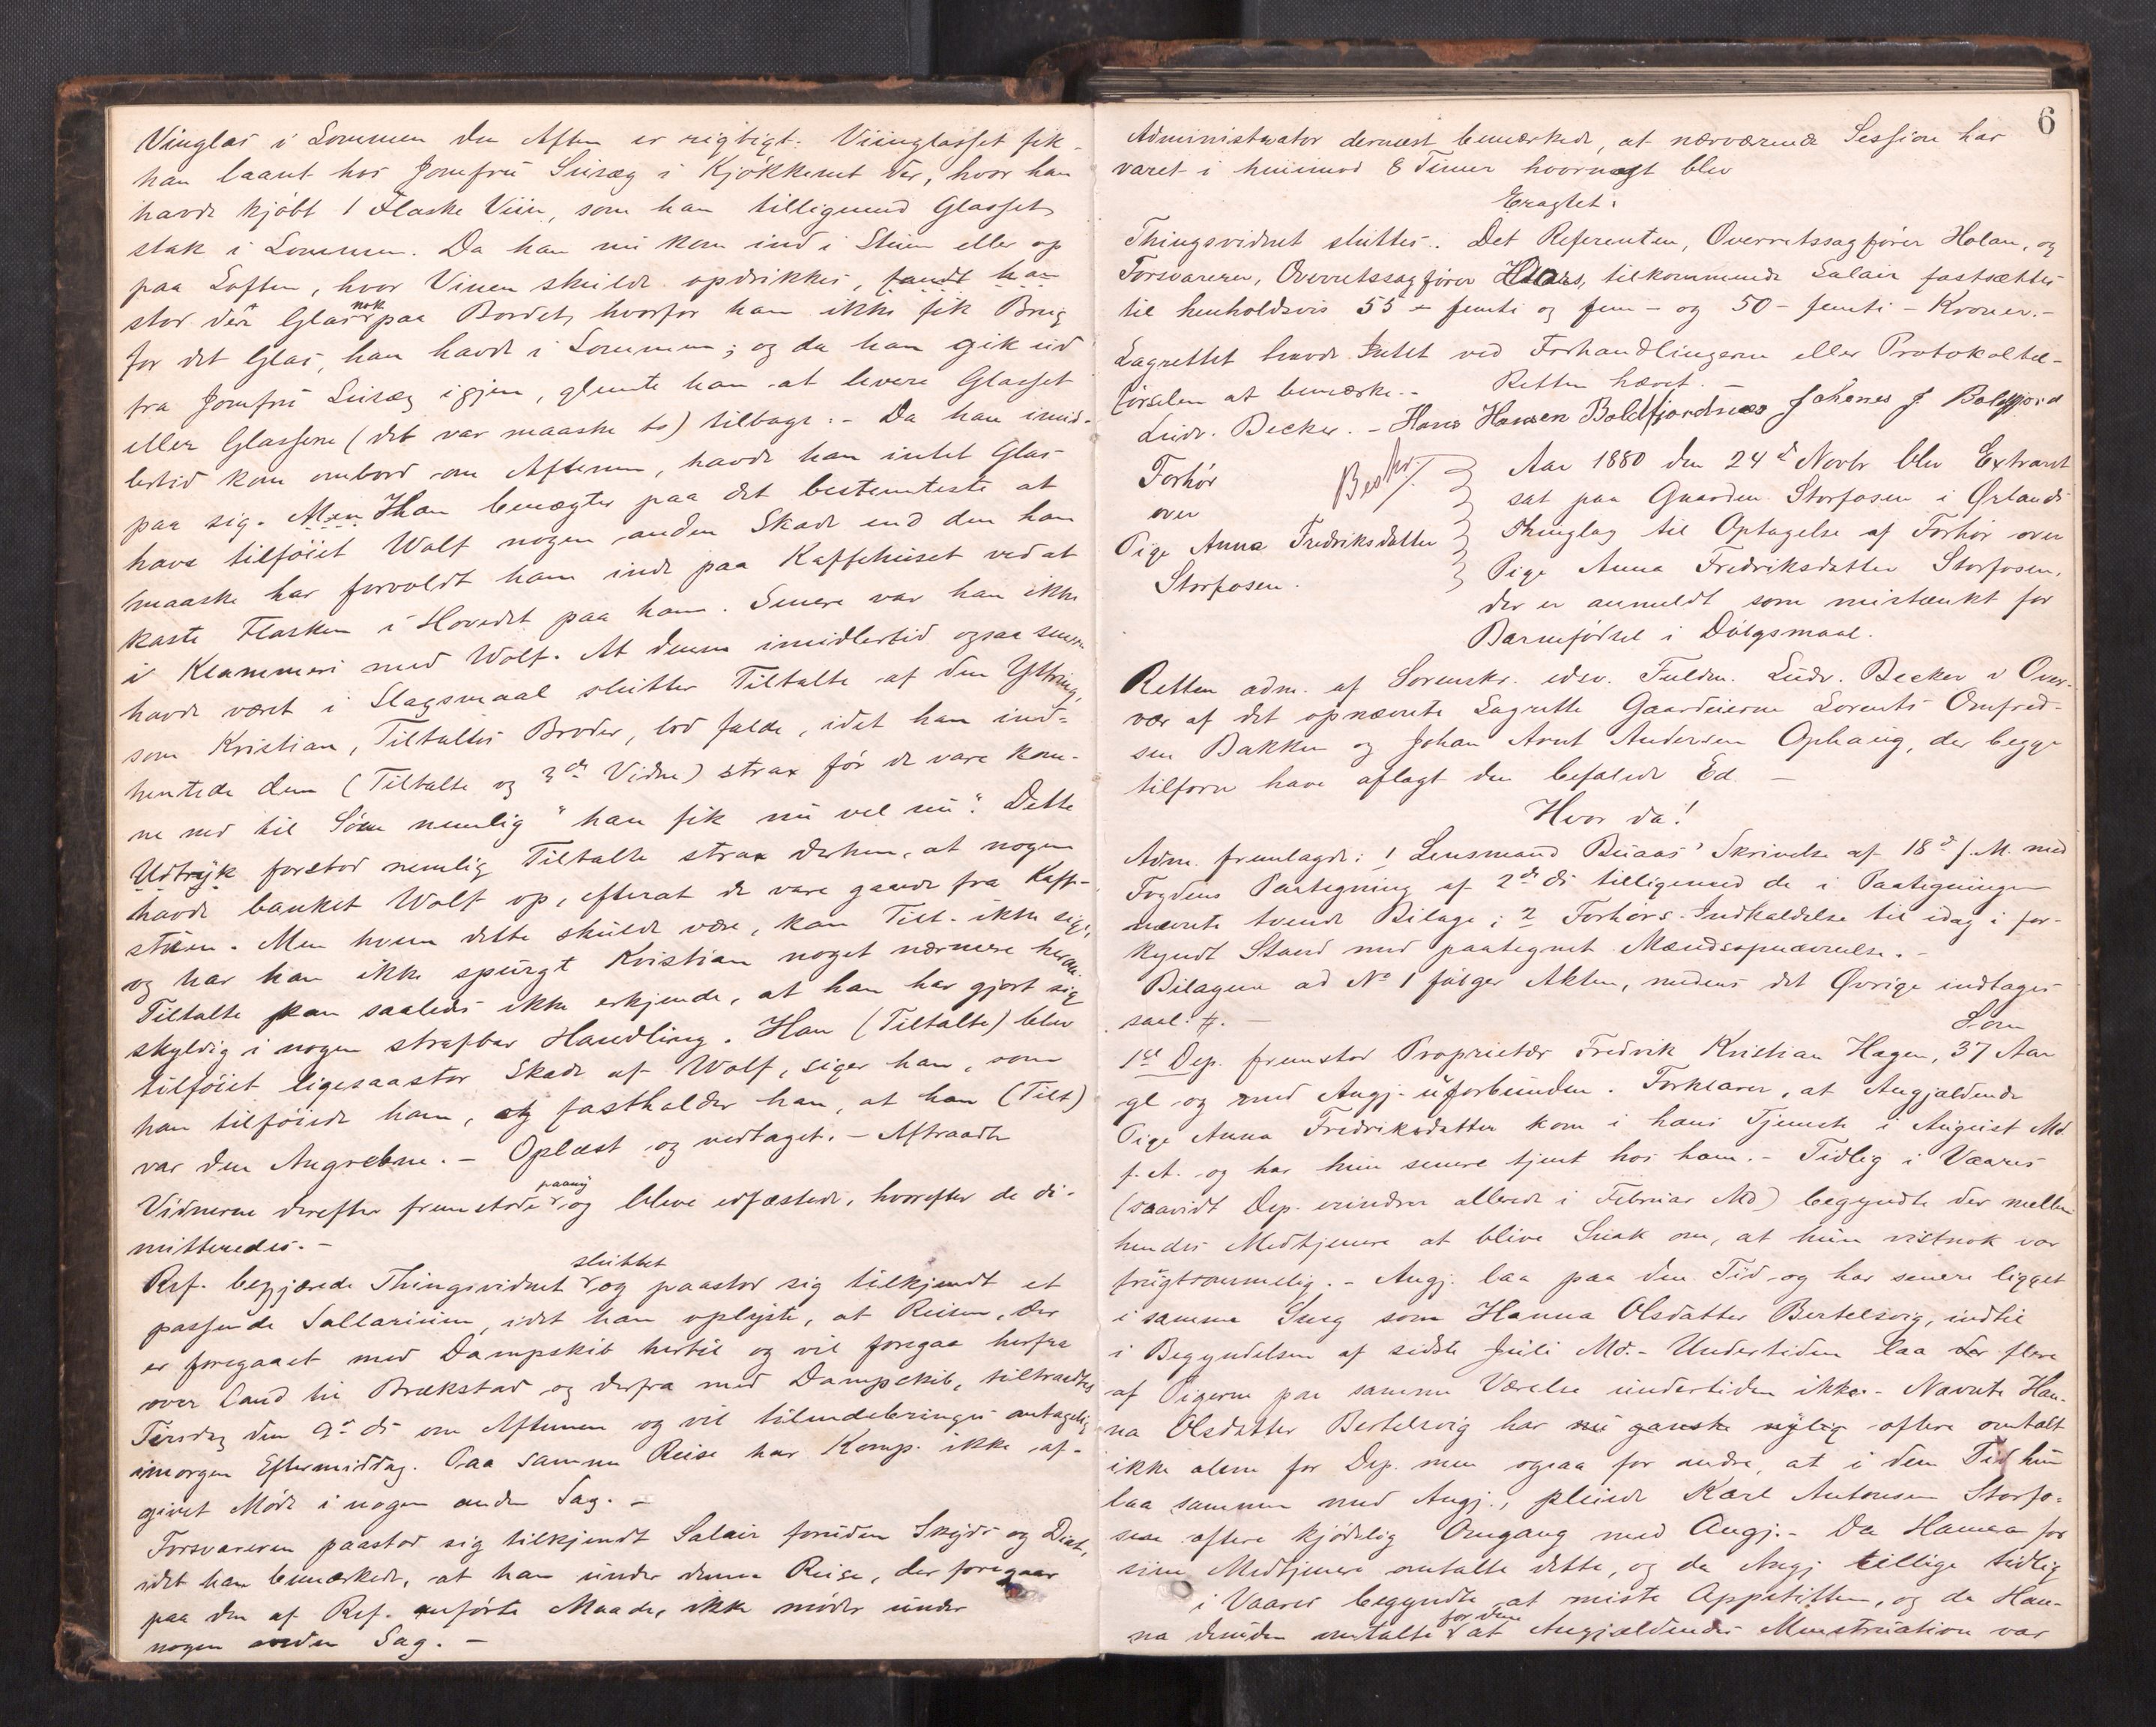 Vinglas i Lommen den Aften er rigtigt. Viinglasset fik
han laant hos Jomfru Siisæg i Kjøkkenet der, hvor han
havde kjøbt 1 Flaske Viin, som han tilligemed Glasset
stak i Lommen. Da han nu kom ind i Stuen eller op
paa Loften, hvor Vinen skulde opdrikkes, fandt han
stod der Glas nok paa Bordet, hvorfor han ikke fik Brug
for det Glas, han havde i Lommen; og da han gik ud
fra Jomfru igjen, glemte han at levere Glasset
eller Glassene (det var maaske to) tilbage. - Da han imid-
lertid kom ombord om Aftenen, havde han intet Glas
paa sig. Men Han benægter paa det bestemteste at
have tilføiet Wolf nogen anden Skade end den han
maaske har forvoldt ham inde paa Kaffehuset ved at
kaste Flasken i Hovedet paa ham. Senere var han ikke
i Klammeri med Wolf. At denne imidlertid ogsaa senere
havde været i Slagsmaal slutter Tiltalte af den Yttring,
som Kristian, Tiltaltes Broder, lod falde, idet han ind-
hentede dem (Tiltalte og 3de Vidne) strax før de vare kom-
ne ned til Søen nemlig "han fik nu vel nu". Dette
Udtryk forstod nemlig Tiltalte strax derhen, at nogen
havde banket Wolf op, efterat de vare gaaede fra Kaffe-
stuen. Men hvem dette skulde være, kan Tilt. ikke sige,
og har han ikke spurgt Kristian noget nærmere herom.
Tiltalte kan saaledes ikke erkjende, at han har gjort sig
skyldig i nogen strafbar Handling. Han (Tiltalte) blev
tilføiet ligesaastor Skade af Wolf, siger han, som
han tilføiede ham, og fastholder han, at han (Tilt)
var den Angrebne. - Oplæst og vedtaget. - Aftraadte
Vidnerne derefter fremstode paany og bleve edfæstede, hvorefter de di-
mitteredes. -
Ref. begjærede Thingsvidnet sluttet og paastod sig tilkjendt et
passende Sallarium, idet han oplyste, at Reisen, der
er foregaaet med Dampskib hertil og vil foregaa herfra
over Land til Brækstad og derfra med Dampskib, tiltraadtes
Tirsdag den 9de ds om Aftenen og vil tilendebringes antagelig
imorgen Eftermiddag. Paa samme Reise har Komp. ikke af-
givet Møde i nogen anden Sag. -
Forsvareren paastod sig tilkjendt Salair foruden Skyds og Diæt,
idet han bemærkede, at han under denne Reise, der foregaar
paa den af Ref. anførte Maade, ikke møder under
nogen anden Sag. -
6
Administrator dernæst bemærkede, at nærværende Session har
varet i henimod 8 Timer hvornæst blev
Eragtet:
Thingsvidnet sluttes. Det Referenten, Overretssagfører Holan, og
Forsvareren, Overretssagfører tilkommende Salair fastsættes
til henholdsvis 55 - femti og fem - og 50 - femti - Kroner. -
Lagrettet havde Intet ved Forhandlingerne eller Protokoltil-
førselen at bemærke. - Retten hævet. -
Ludv. Becker. - Hans Hansen Boldfjordnes Johanes J. Boldfjord
Forhør
over
Pige Anna Fredriksdatter
Storfosen.
Beskr.
Aar 1880 den 24de Novbr blev Extraret
sat paa Gaarden Storfosen i Ørlands
Thinglag til Optagelse af Forhør over
Pige Anna Fredriksdatter Storfosen,
der er anmeldt som mistænkt for
Barnefødsel i Dølgsmaal.
Retten adm. af Sorenskr. edsv. Fuldm. Ludv. Becker i Over-
vær af det opnævnte Lagrette Gaardeierne Lorents Omfred-
sen Bakken og Johan Arnt Andersen Ophaug, der begge
tilforn have aflagt den befalede Ed. -
Hvor da!
Adm. fremlagde: 1 Lensmand Buaas' Skrivelse af 18de f.M. med
Fogdens Paategning af 2de ds tilligemed de i Paategningen
nævnte tvende Bilage; 2 Forhørs-Indkaldelse til idag i for-
kyndt Stand med paategnet Mændsopnævnelse. -
Bilagene ad No 1 følger Akten, medens det Øvrige indtages
saal. #. -
Som
1st Dep. fremstod Proprietær Fredrik Kristian Hagen, 37 Aar
gl. og med Angj. uforbunden. Forklarer, at Angjældende
Pige Anna Fredriksdatter kom i hans Tjeneste i August Md.
f.A. og har hun senere tjent hos ham. - Tidlig i Vaares
(saavidt Dep. erindrer allerede i Februar Md) begyndte der mellem
hendes Medtjenere at blive Snak om, at hun vistnok var
frugtsommelig. - Angj. laa paa den Tid og har senere ligget
i samme Seng som Hanna Olsdatter Bertelsvig, indtil
i Begyndelsen af sidste Juli Md. - Undertiden laa der flere
af Pigerne paa samme Værelse undertiden ikke. - Nævnte Han-
na Olsdatter Bertelsvig har nu ganske nylig oftere omtalt
ikke alene for Dep. men ogsaa for andre, at i den Tid hun
laa sammen med Angj., pleiede Karl Antonsen Storfo-
sen oftere kjødelig Omgang med Angj. - Da Hanna for
sine Medtjenere omtalte dette, og da Angj tillige tidlig
i Vaares begyndte at miste Appetitten, og da Han-
na desuden omtalte for dem at Angjældendes Menstruation var